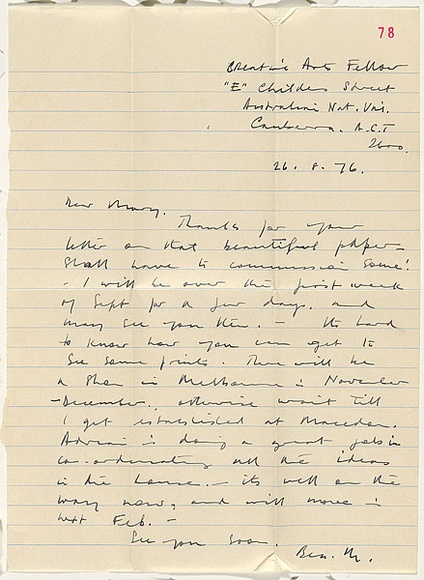 78
Creative Arts Fellow
"E" Childers Street
Australian Nat. Uni.
Canberra. A.C.T
2600.
26. 8. 76.
Dear Mary,
Thanks for your
letter on that beautiful paper -
Shall have to commission some!
- I will be over the first week
of Sept for a few days, and
may see you then. - Its hard
to know how you can get to
see some prints. There will be
a Show in Melbourne in November
- December, otherwise wait till
I get established at Macedon.
Adrian is doing a great job in
co-ordinating all the ideas
in the house. - its well on the
way now, and will move in
next Feb. -
See you soon.